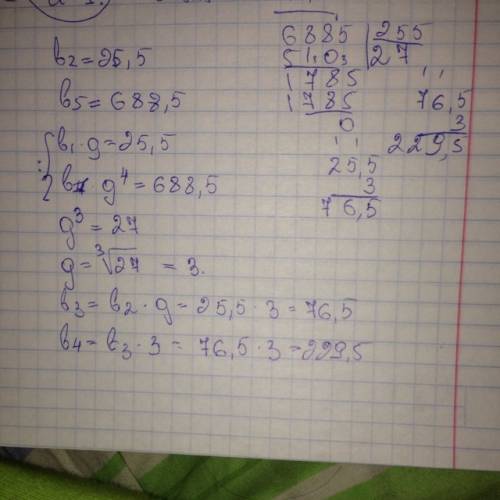 b₂=25,5
b₅=688,5
{ b₁·g=25,5
: b₁·g⁴=688,5
g³=27
g=³√27 =3.
b₃=b₂·g=25,5·3=76,5
b₄=b₃·3=76,5·3=229,5
6885 | 255
5103 | 27
1785
1785
0
25,5
3
76,5
76,5
3
229,5